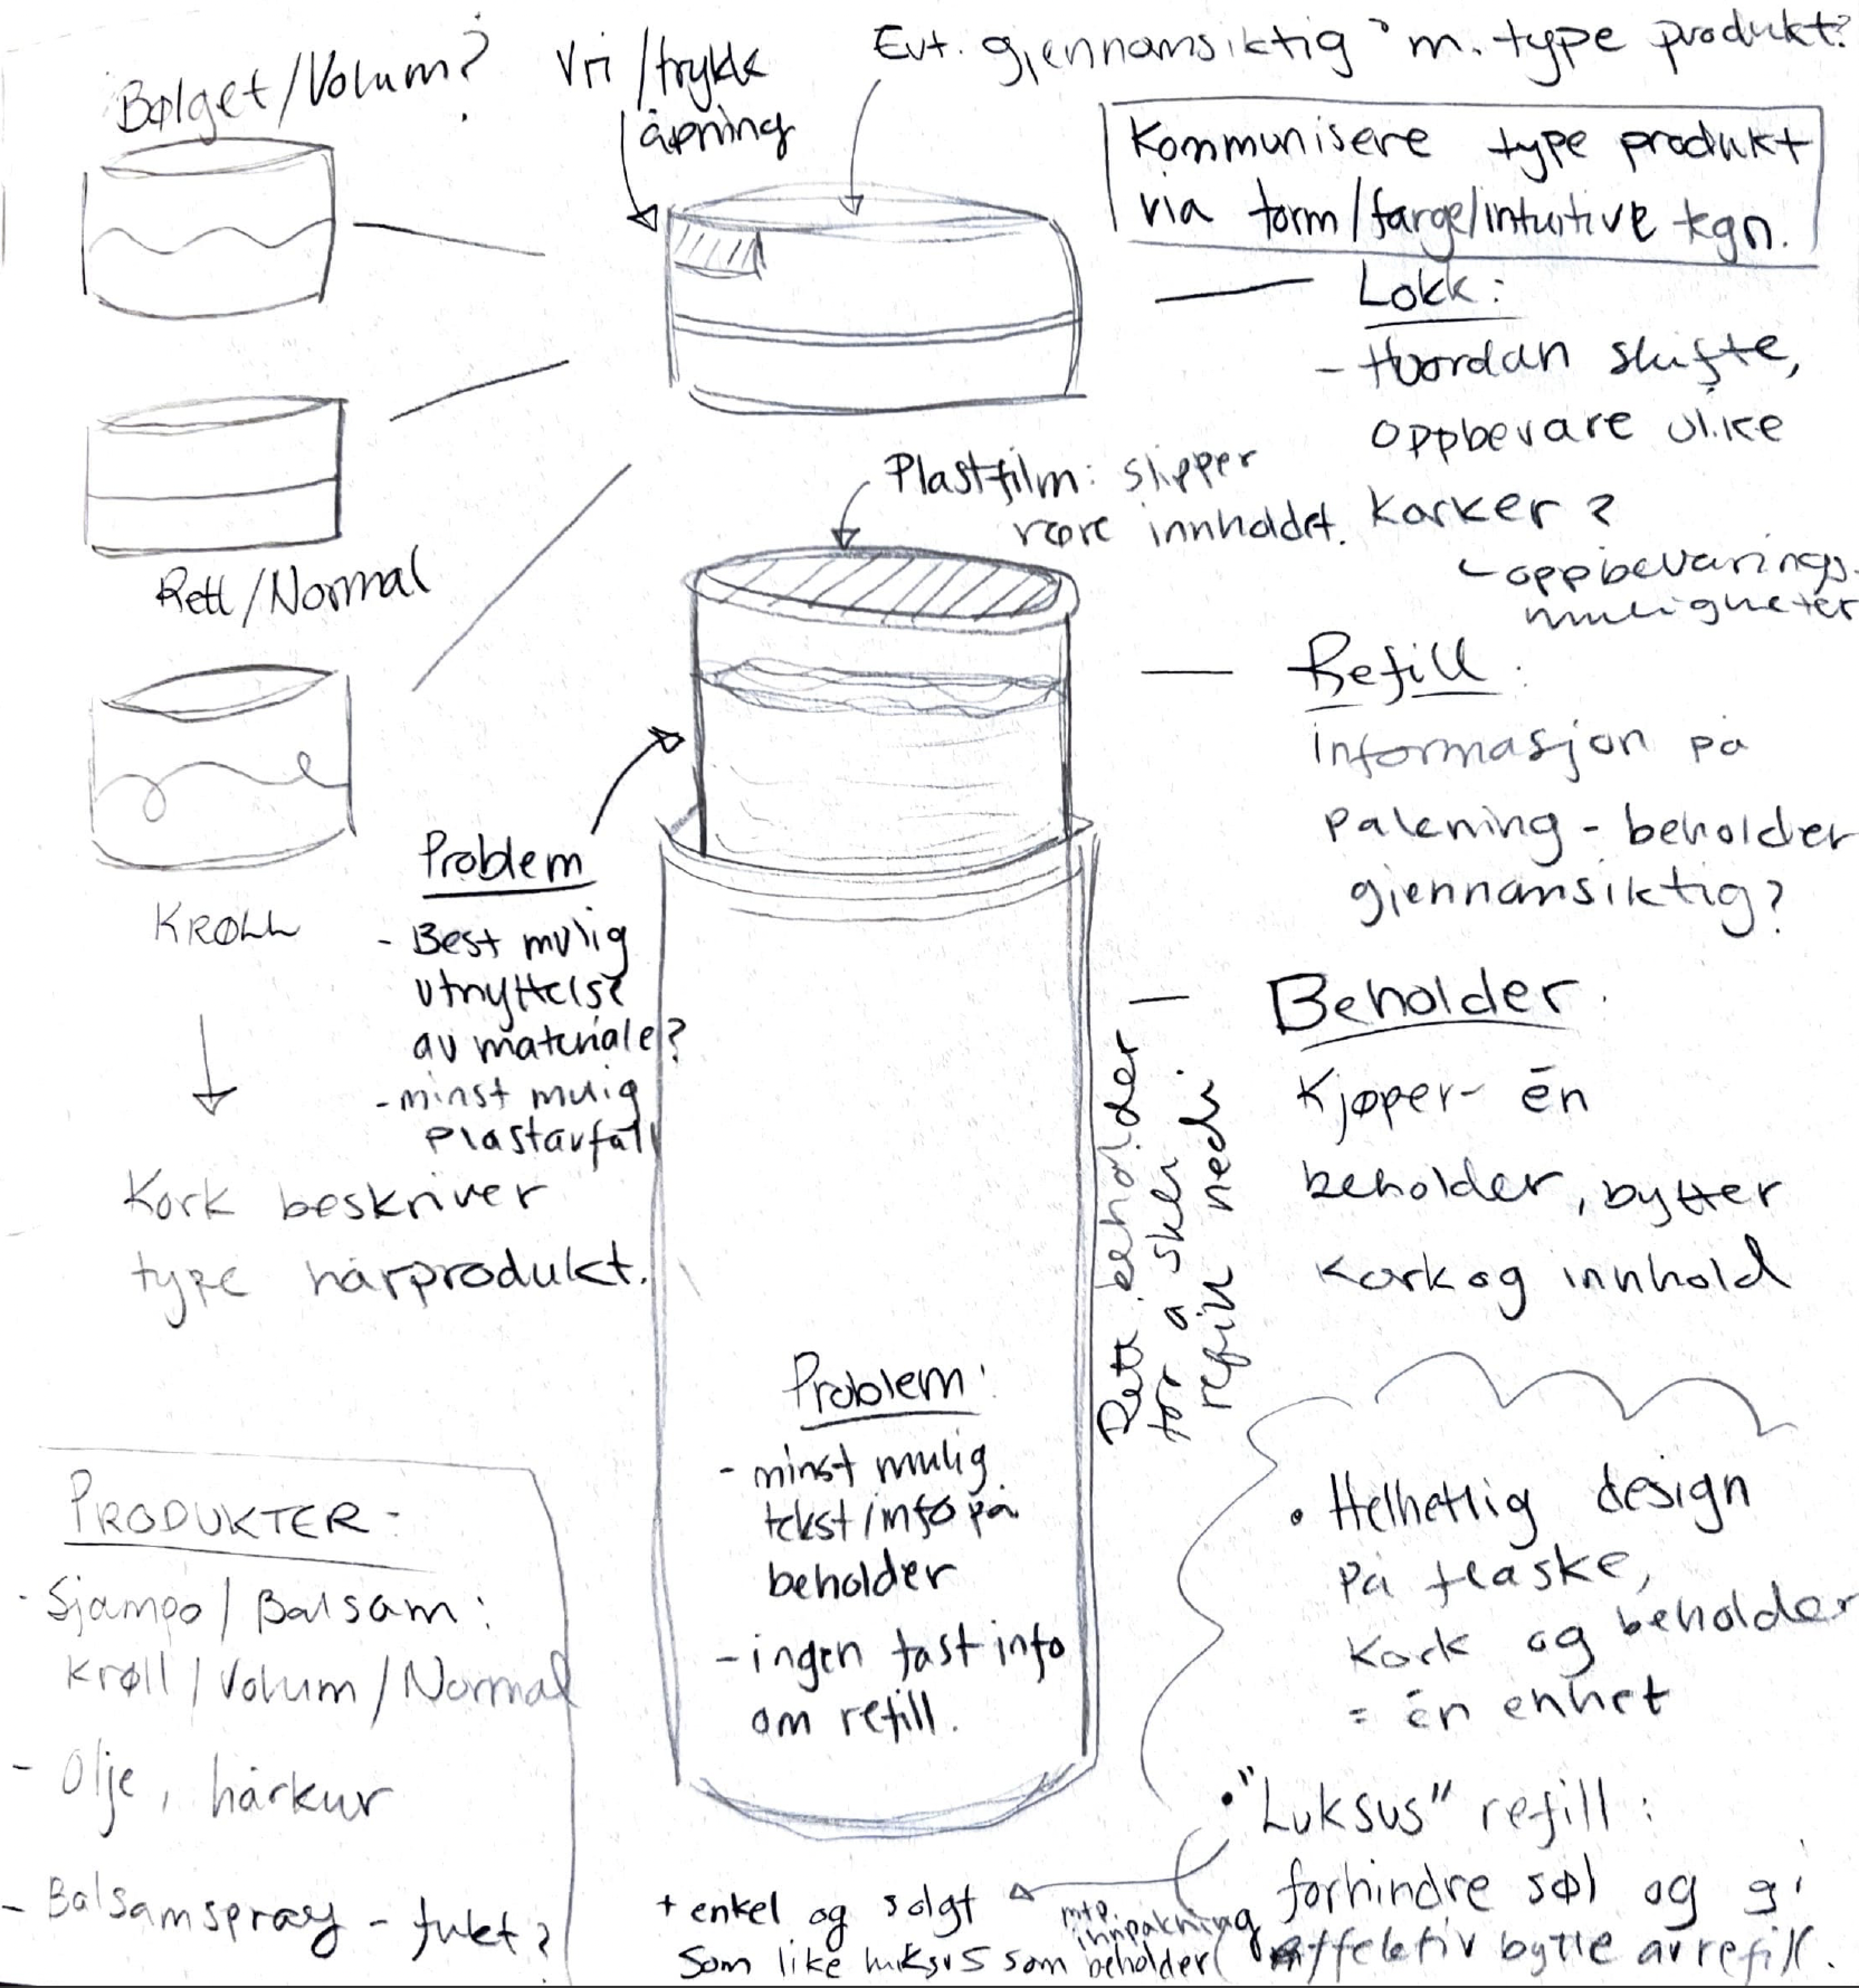 Bølget/Volum?
Vri/trykk
åpning
Evt. gjennomsiktig m. type produkt?
Kommunisere type produkt
via form/farge/intuitive tegn.
Lokk:
- Hvordan skifte,
oppbevare ulike
korker?
oppbevarings-
muligheter
Rett/Normal
Plastfilm: slipper
røre innholdet.
Refill:
informasjon på
pakning - beholder
gjennomsiktig?
KRØLL
Kork beskriver
type hårprodukt.
Problem
- Best mulig
utnyttelse
av materiale?
- minst mulig
plastavfall
Beholder:
Kjøper én
beholder, bytter
kork og innhold
Rett beholder
for å skli
refill nedi
Problem:
- minst mulig
tekst/info på
beholder
- ingen fast info
om refill.
PRODUKTER:
- Sjampo/Balsam:
Krøll/Volum/Normal
- Olje, hårkur
- Balsamspray - fukt?
• Helhetlig design
på flaske,
kork og beholder
= én enhet
• "Luksus" refill:
forhindre søl og gi
effektiv bytte av refill.
+ enkel og solgt
som like luksus som beholder
mtp.
innpakning